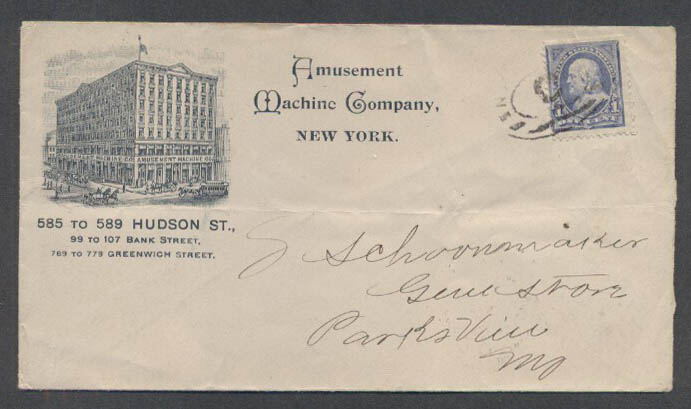 Amusement
Machine Company,
NEW YORK.
MACHINE CO. AMUSEMENT MACHINE CO.
585 TO 589 HUDSON ST.,
99 TO 107 BANK STREET,
769 TO 779 GREENWICH STREET.
1 1
ONE CENT
Schoonmaker
Genl Store
Parksville